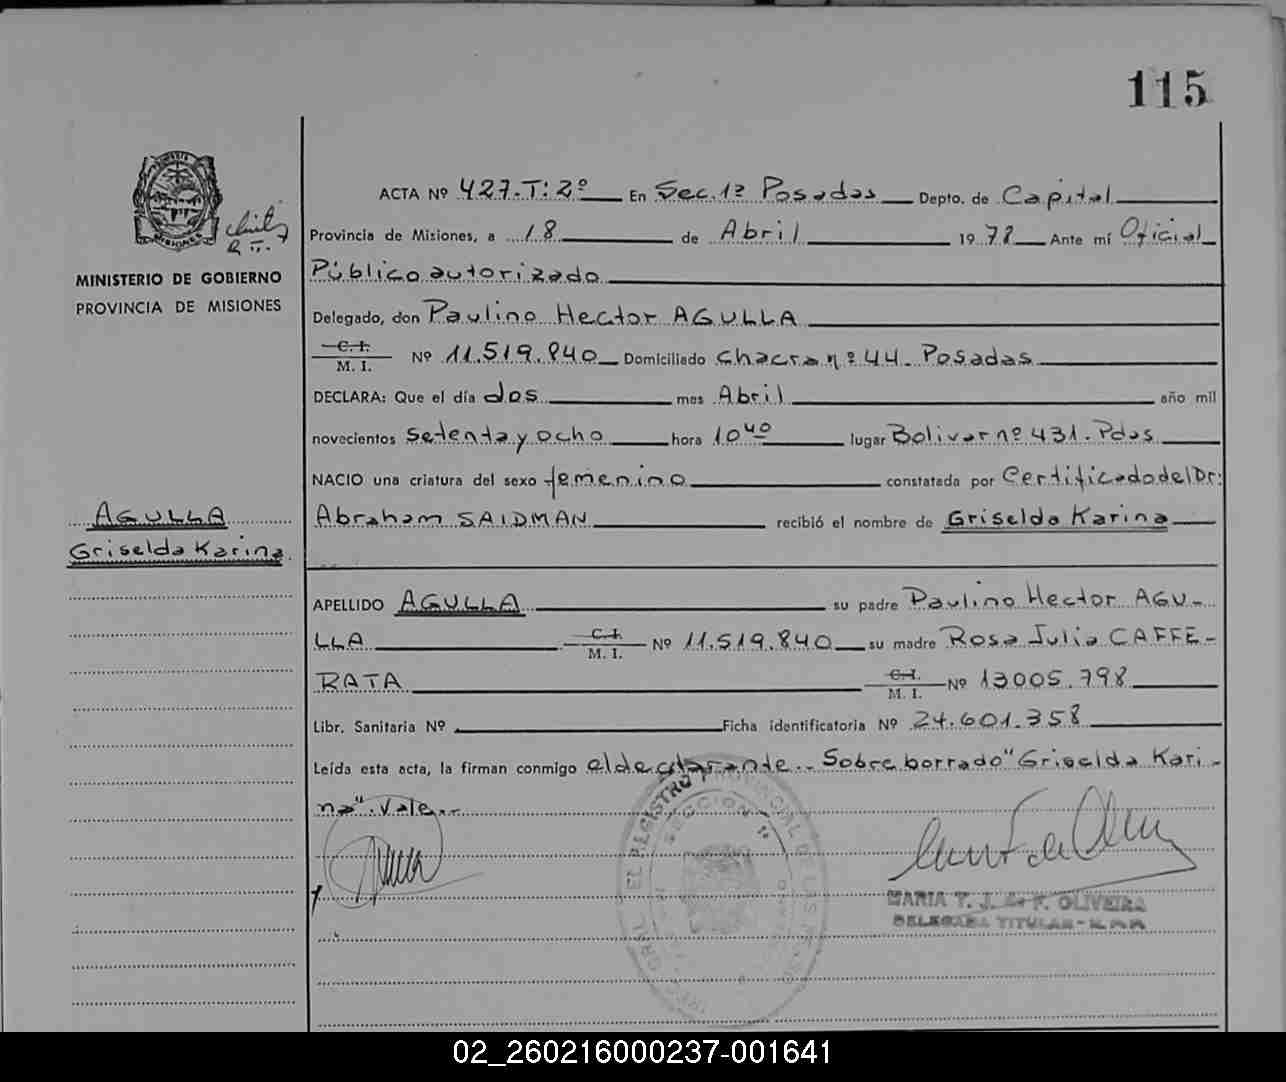 115
ACTA Nº 427.T:2º En Sec. 1ª Posadas Depto. de Capital
Provincia de Misiones, a 18 de Abril 1978 Ante mí Oficial
Público autorizado
Delegado, don Paulino Hector AGULLA
C. I.
M. I. Nº 11.519.840 Domiciliado chacra nº 44. Posadas
DECLARA: Que el día dos mes Abril año mil
novecientos setenta y ocho hora 10 40 lugar Bolivar nº 431. Pdas
NACIO una criatura del sexo femenino constatada por Certificado del Dr:
Abraham SAIDMAN recibió el nombre de Griselda Karina
APELLIDO AGULLA su padre Paulino Hector AGU-
LLA C. I. M. I. Nº 11.519.840 su madre Rosa Julia CAFFE-
RATA C. I. M. I. Nº 13005.798
Libr. Sanitaria Nº Ficha identificatoria Nº 24.601.358
Leída esta acta, la firman conmigo el declarante.. Sobre borrado "Griselda Kari-
na". Vale.-
MINISTERIO DE GOBIERNO
PROVINCIA DE MISIONES
AGULLA
Griselda Karina
REGISTRO PROVINCIAL DE LAS
SECCION 1ª
MARIA T. J. de F. OLIVEIRA
DELEGADA TITULAR
02_260216000237-001641